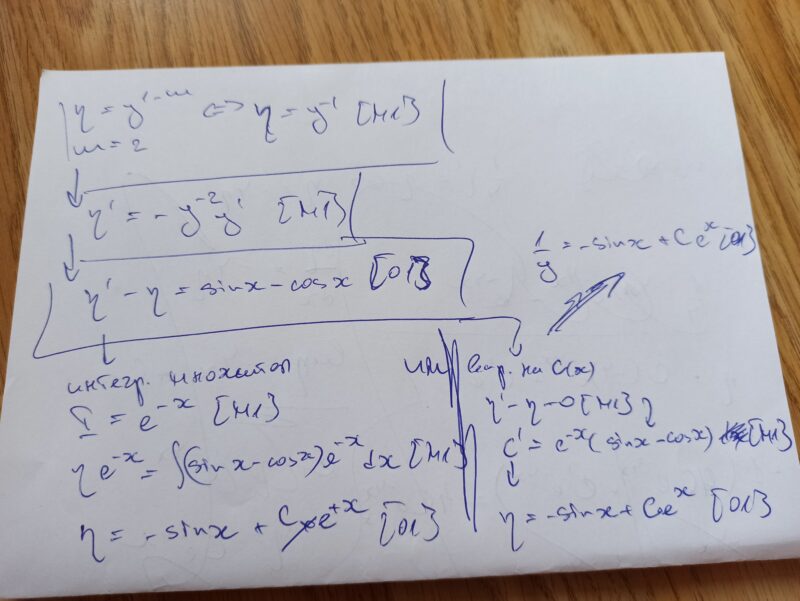 η = y^{1-m} <=> η = y^{-1} [M1]
m = 2
η' = -y^{-2}y' [M1]
η' - η = sinx - cosx [O1]
1/y = -sinx + Ce^x [O1]
интегр. множител
I = e^{-x} [M1]
ηe^{-x} = ∫(sinx - cosx)e^{-x}dx [M1]
η = -sinx + Ce^{+x} [O1]
или
вар. на C(x)
η' - η = 0 [M1]
C' = e^{-x}(sinx - cosx) [M1]
η = -sinx + Ce^x [O1]